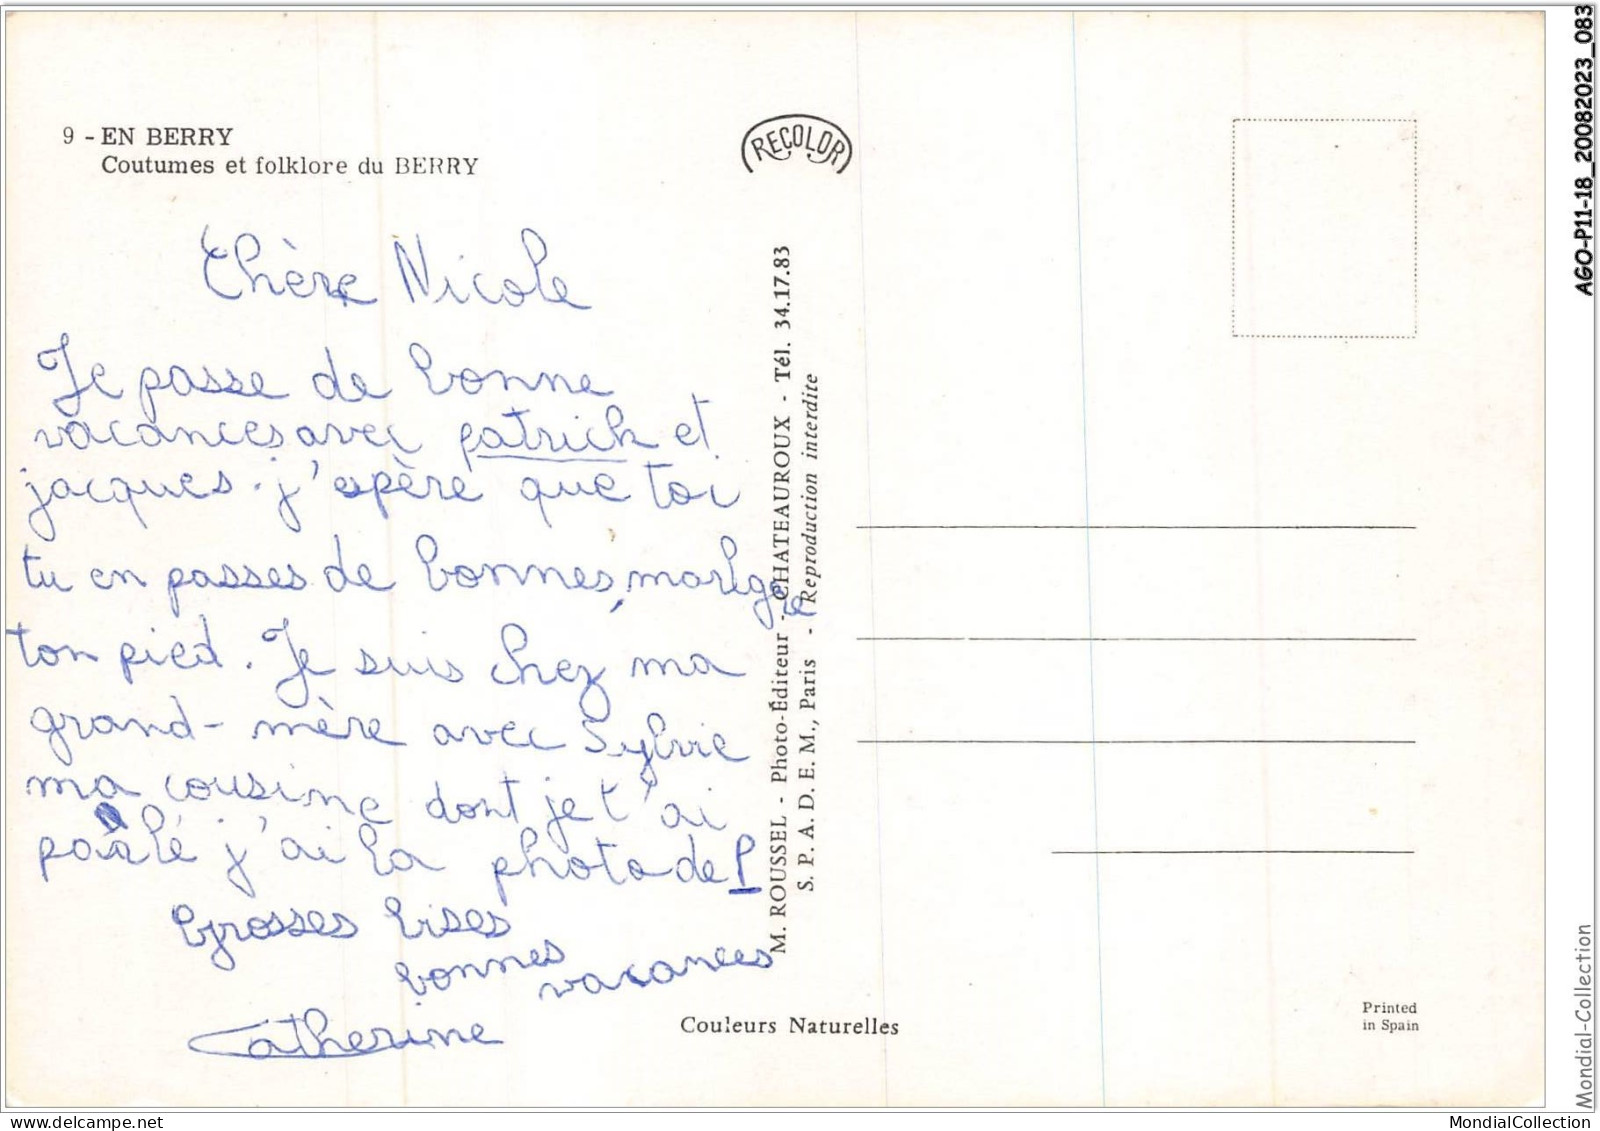 9 - EN BERRY
Coutumes et folklore du BERRY
RECOLOR
Chère Nicole
Je passe de bonne
vacances avec patrick et
jacques. j'espère que toi
tu en passes de bonnes, malegre
ton pied. Je suis chez ma
grand-mère avec Sylvie
ma cousine dont je t'ai
parlé j'ai la photo de P
Grosses bises
bonnes
vacances
Catherine
M. ROUSSEL - Photo-Éditeur - CHATEAUROUX - Tél. 34.17.83
S. P. A. D. E. M., Paris - Reproduction interdite
Couleurs Naturelles
Printed
in Spain
AGO-P11-18_20082023_083
Mondial-Collection
MondialCollection